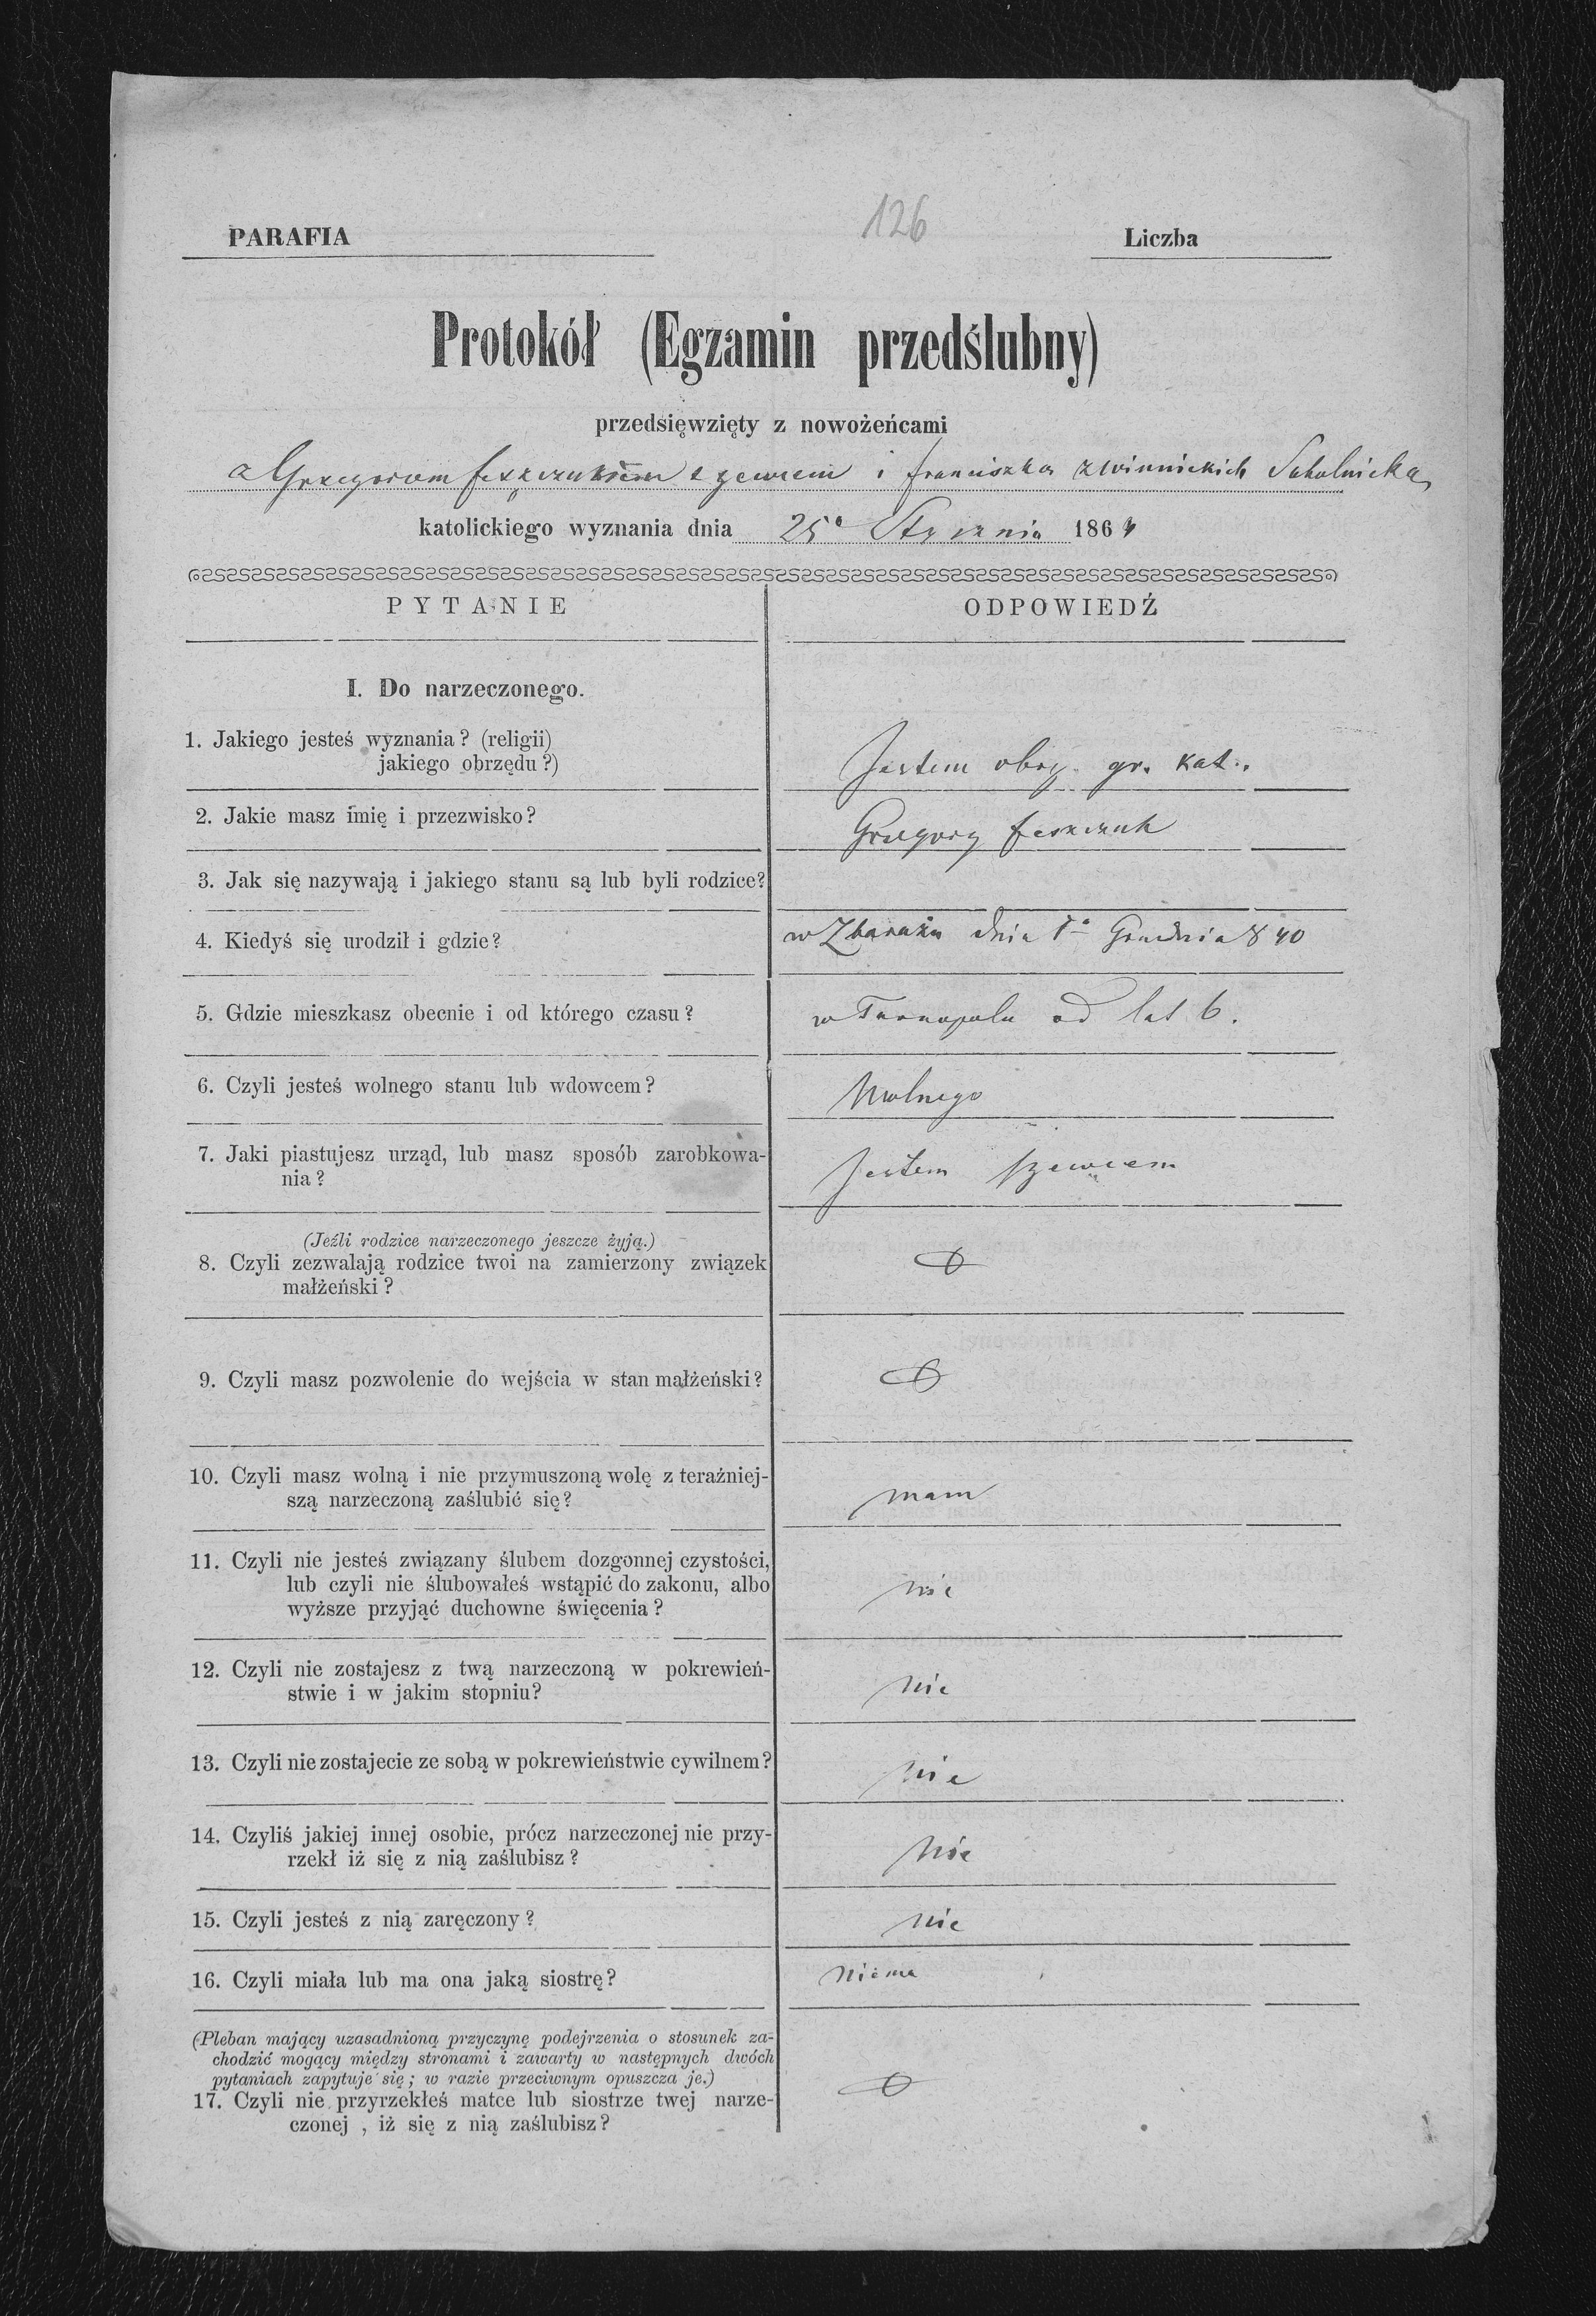 126
PARAFIA
Liczba
Protokół (Egzamin przedślubny)
przedsięwzięty z nowożeńcami
a Grzegorzem Feszczukiem szewcem i Franciszką z Winnickich Sokolnicką
katolickiego wyznania dnia 25o Stycznia 1864
PYTANIE
ODPOWIEDŹ
I. Do narzeczonego.
1. Jakiego jesteś wyznania? (religii)
jakiego obrzędu?)
Jestem obrz. gr. kat.
2. Jakie masz imię i przezwisko?
Grzegorz Feszczuk
3. Jak się nazywają i jakiego stanu są lub byli rodzice?
4. Kiedyś się urodził i gdzie?
w Zbarażu dnia 1o Grudnia 840
5. Gdzie mieszkasz obecnie i od którego czasu?
w Tarnopolu od lat 6.
6. Czyli jesteś wolnego stanu lub wdowcem?
Wolnego
7. Jaki piastujesz urząd, lub masz sposób zarobkowa-
nia?
Jestem szewcem
(Jeźli rodzice narzeczonego jeszcze żyją.)
8. Czyli zezwalają rodzice twoi na zamierzony związek
małżeński?
9. Czyli masz pozwolenie do wejścia w stan małżeński?
10. Czyli masz wolną i nie przymuszoną wolę z teraźniej-
szą narzeczoną zaślubić się?
mam
11. Czyli nie jesteś związany ślubem dozgonnej czystości,
lub czyli nie ślubowałeś wstąpić do zakonu, albo
wyższe przyjąć duchowne święcenia?
nie
12. Czyli nie zostajesz z twą narzeczoną w pokrewień-
stwie i w jakim stopniu?
nie
13. Czyli nie zostajecie ze sobą w pokrewieństwie cywilnem?
nie
14. Czyliś jakiej innej osobie, prócz narzeczonej nie przy-
rzekł iż się z nią zaślubisz?
nie
15. Czyli jesteś z nią zaręczony?
nie
16. Czyli miała lub ma ona jaką siostrę?
niema
(Pleban mający uzasadnioną przyczynę podejrzenia o stosunek za-
chodzić mogący między stronami i zawarty w następnych dwóch
pytaniach zapytuje się; w razie przeciwnym opuszcza je.)
17. Czyli nie przyrzekłeś matce lub siostrze twej narze-
czonej , iż się z nią zaślubisz?